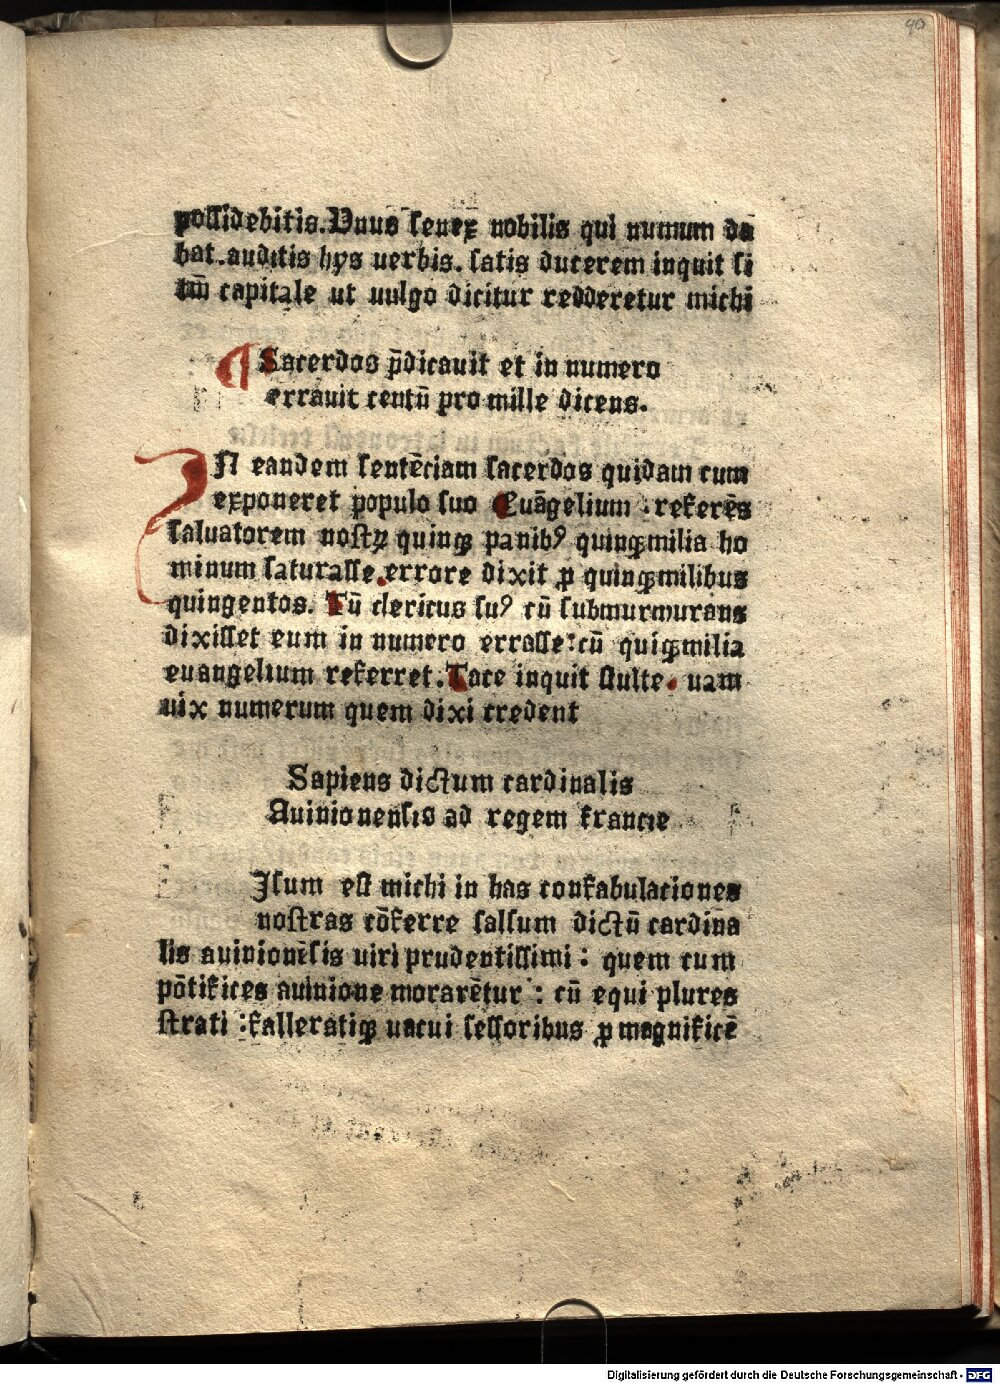 90
possidebitis. Unus senex nobilis qui numum da
bat. auditis hys uerbis. satis ducerem inquit si
tm̄ capitale ut uulgo dicitur redderetur michi
¶ Sacerdos p̄dicauit et in numero
errauit centū pro mille dicens.
IN eandem sentēciam sacerdos quidam cum
exponeret populo suo Euāgelium : referēs
saluatorem nostꝝ quinqꝫ panibꝰ quinqꝫmilia ho
minum saturasse. errore dixit ꝓ quinqꝫmilibus
quingentos. Tū clericus suꝰ cū submurmurans
dixisset eum in numero errasse: cū quiqꝫmilia
euangelium referret. Tace inquit stulte. nam
uix numerum quem dixi credent
Sapiens dictum cardinalis
Auinionensis ad regem francie
Isum est michi in has confabulaciones
nostras cōferre salsum dictū cardina
lis auinionēsis uiri prudentissimi : quem cum
pōtifices auinione morarētur : cū equi plures
strati : falleratiqꝫ uacui sessoribus ꝓ magnificē
Digitalisierung gefördert durch die Deutsche Forschungsgemeinschaft - DFG